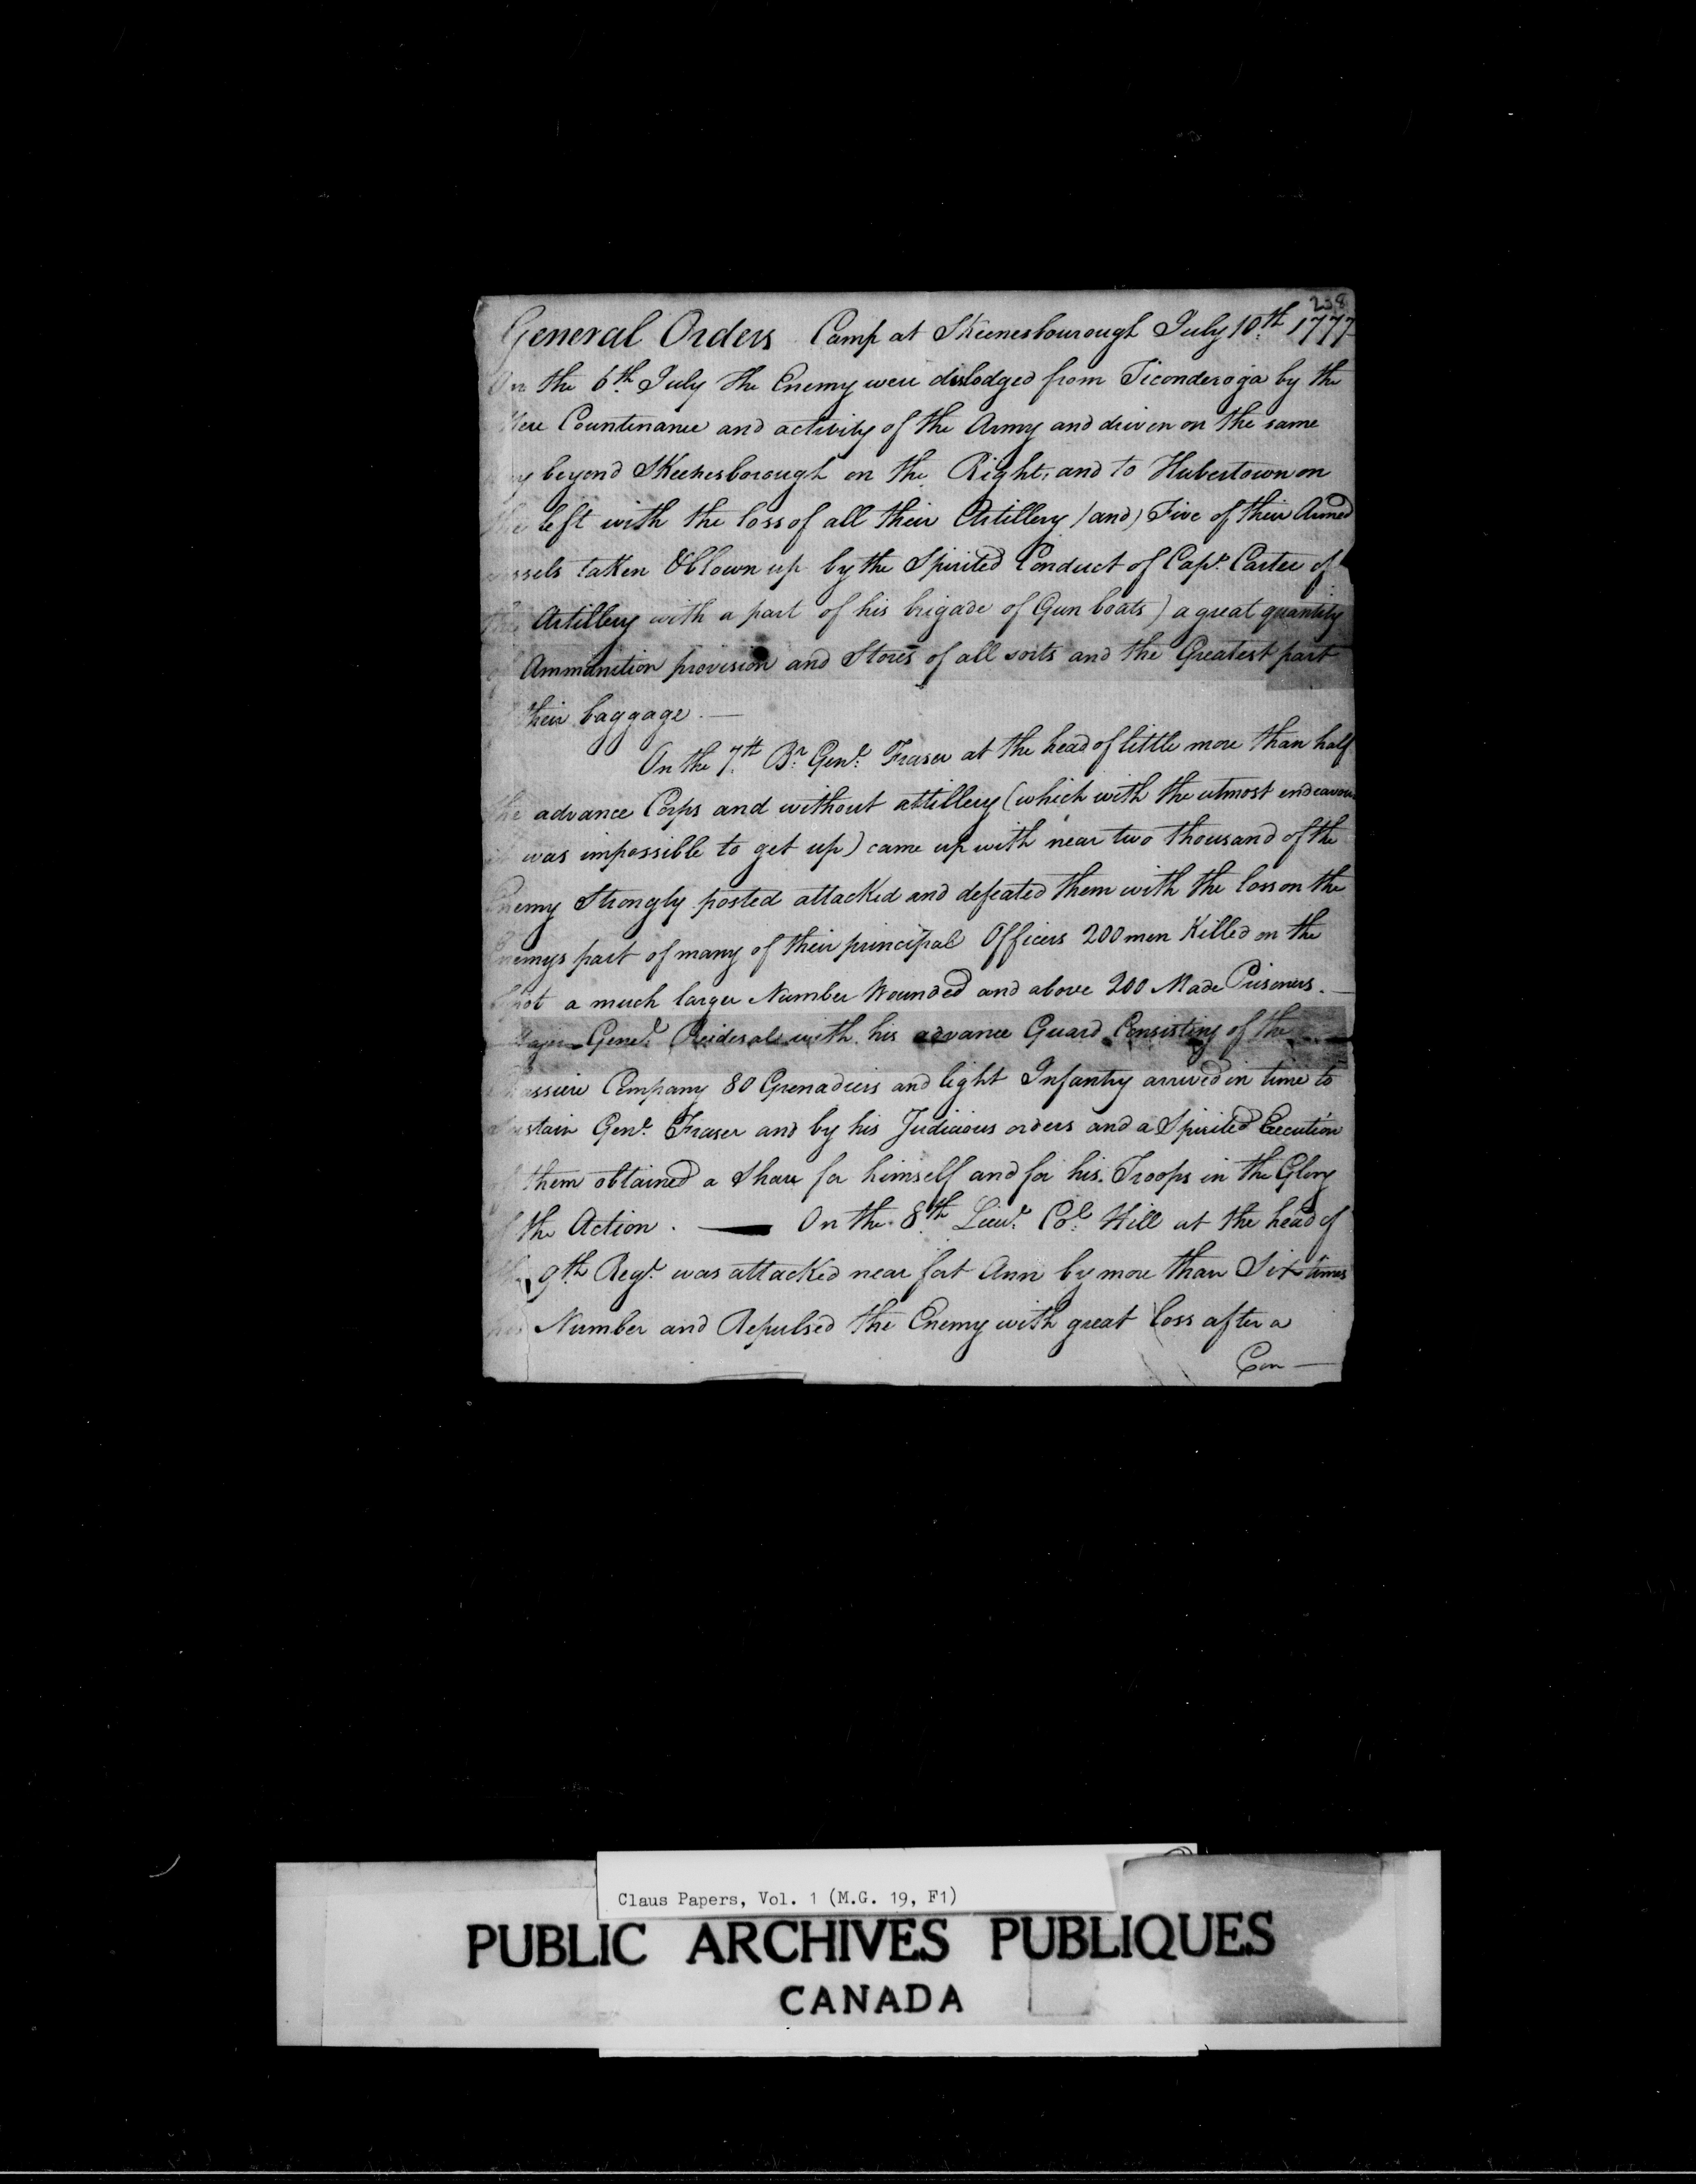 238
General Orders Camp at Skeenesbourough July 10th 1777
On the 6th July the Enemy were dislodged from Ticonderoga by the
Mere Countenance and activity of the Army and driven on the same
beyond Skeenesborough on the Right, and to Hubertown on
the left with the loss of all their Artillery (and) Five of their Armed
vessels taken & blown up by the Spirited Conduct of Capt. Carter of
the Artillery with a part of his brigade of Gun boats) a great quantity
of Ammunition provision and Stores of all sorts and the Greatest part
their baggage. —
On the 7th Br. Genl. Fraser at the head of little more than half
the advance Corps and without attillery (which with the utmost endeavour
it was impossible to get up) came up with near two thousand of the
Enemy Strongly posted attacked and defeated them with the loss on the
Enemys part of many of their principal Officers 200 men Killed on the
Spot a much larger Number Wounded and above 200 Made Prisoners. —
Major Genl. Reidesal with his advance Guard Consisting of the
Chassiere Company 80 Grenadiers and light Infantry arrived in time to
Sustain Genl. Fraser and by his Judicious orders and a Spirited Execution
of them obtained a Share for himself and for his Troops in the Glory
of the Action. — On the 8th Lieut. Col. Hill at the head of
the 9th Regt. was attacked near fort Ann by more than Six times
his Number and Repulsed the Enemy with great loss after a
Con —
Claus Papers, Vol. 1 (M.G. 19, F1)
PUBLIC ARCHIVES PUBLIQUES
CANADA